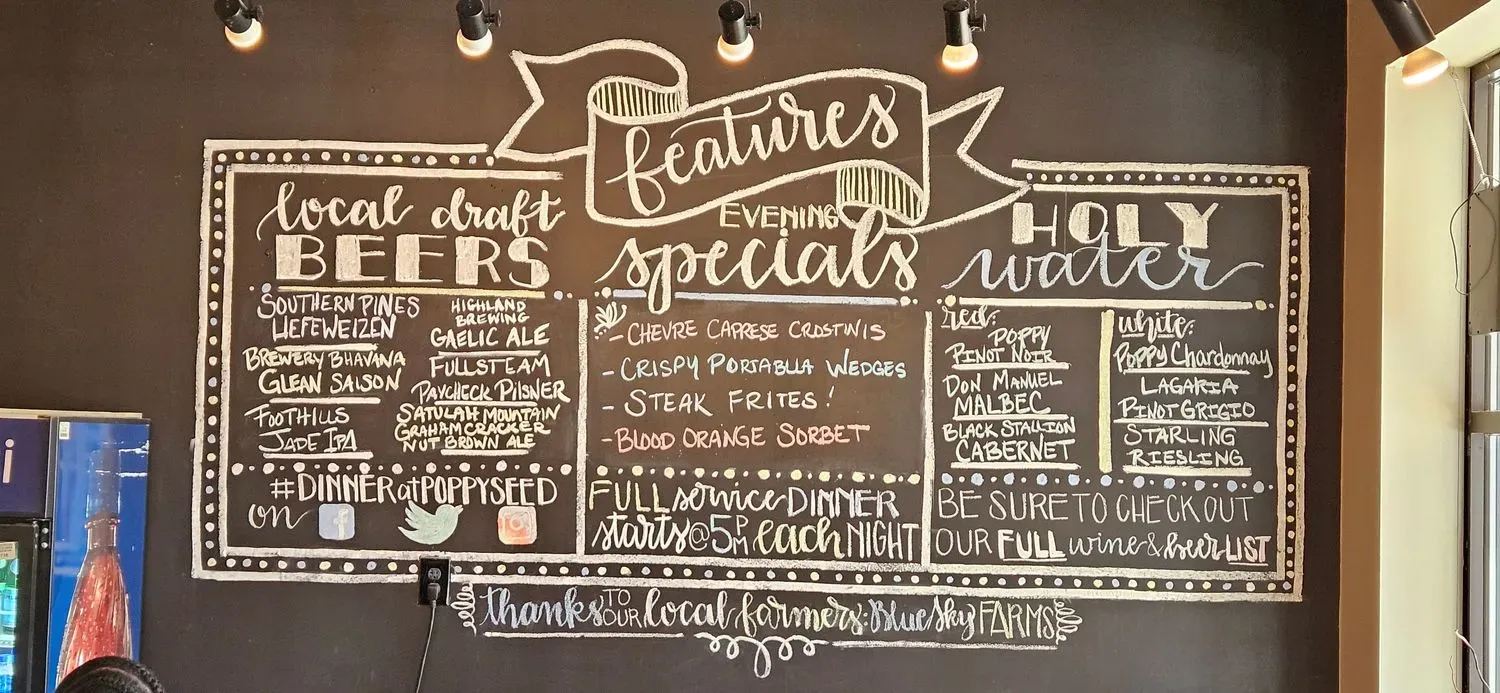 features
local draft
BEERS
SOUTHERN PINES
HEFEWEIZEN
BREWERY BHAVANA
GLEAN SAISON
FOOTHILLS
JADE IPA
HIGHLAND
BREWING
GAELIC ALE
FULLSTEAM
PAYCHECK PILSNER
SATULAH MOUNTAIN
GRAHAMCRACKER
NUT BROWN ALE
#DINNER at POPPYSEED
on
EVENING
specials
- CHEVRE CAPRESE CROSTINIS
- CRISPY PORTABLLA WEDGES
- STEAK FRITES!
- BLOOD ORANGE SORBET
FULL service DINNER
starts @ 5PM each NIGHT
HOLY
water
red:
POPPY
PINOT NOIR
DON MANUEL
MALBEC
BLACK STALLION
CABERNET
white:
Poppy Chardonnay
LAGARIA
PINOT GRIGIO
STARLING
RIESLING
BE SURE TO CHECK OUT
OUR FULL wine & beer LIST
thanks TO OUR local farmers: Blue Sky FARMS